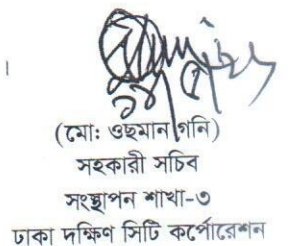 (মো: ওছমান গনি)
সহকারী সচিব
সংস্থাপন শাখা-৩
ঢাকা দক্ষিণ সিটি কর্পোরেশন